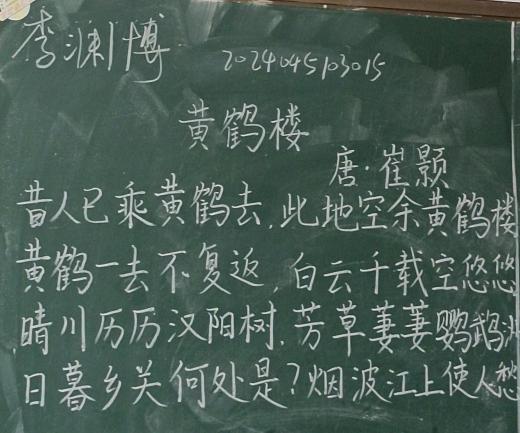 李渊博 2024045103015
黄鹤楼
唐·崔颢
昔人已乘黄鹤去,此地空余黄鹤楼
黄鹤一去不复返,白云千载空悠悠
晴川历历汉阳树,芳草萋萋鹦鹉洲
日暮乡关何处是?烟波江上使人愁